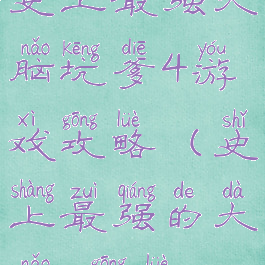 史上最强大
nǎo kēng diē yóu
脑坑爹4游
xì gōng lüè shǐ
戏攻略（史
shàng zuì qiáng de dà
上最强的大
nǎo gōng lüè